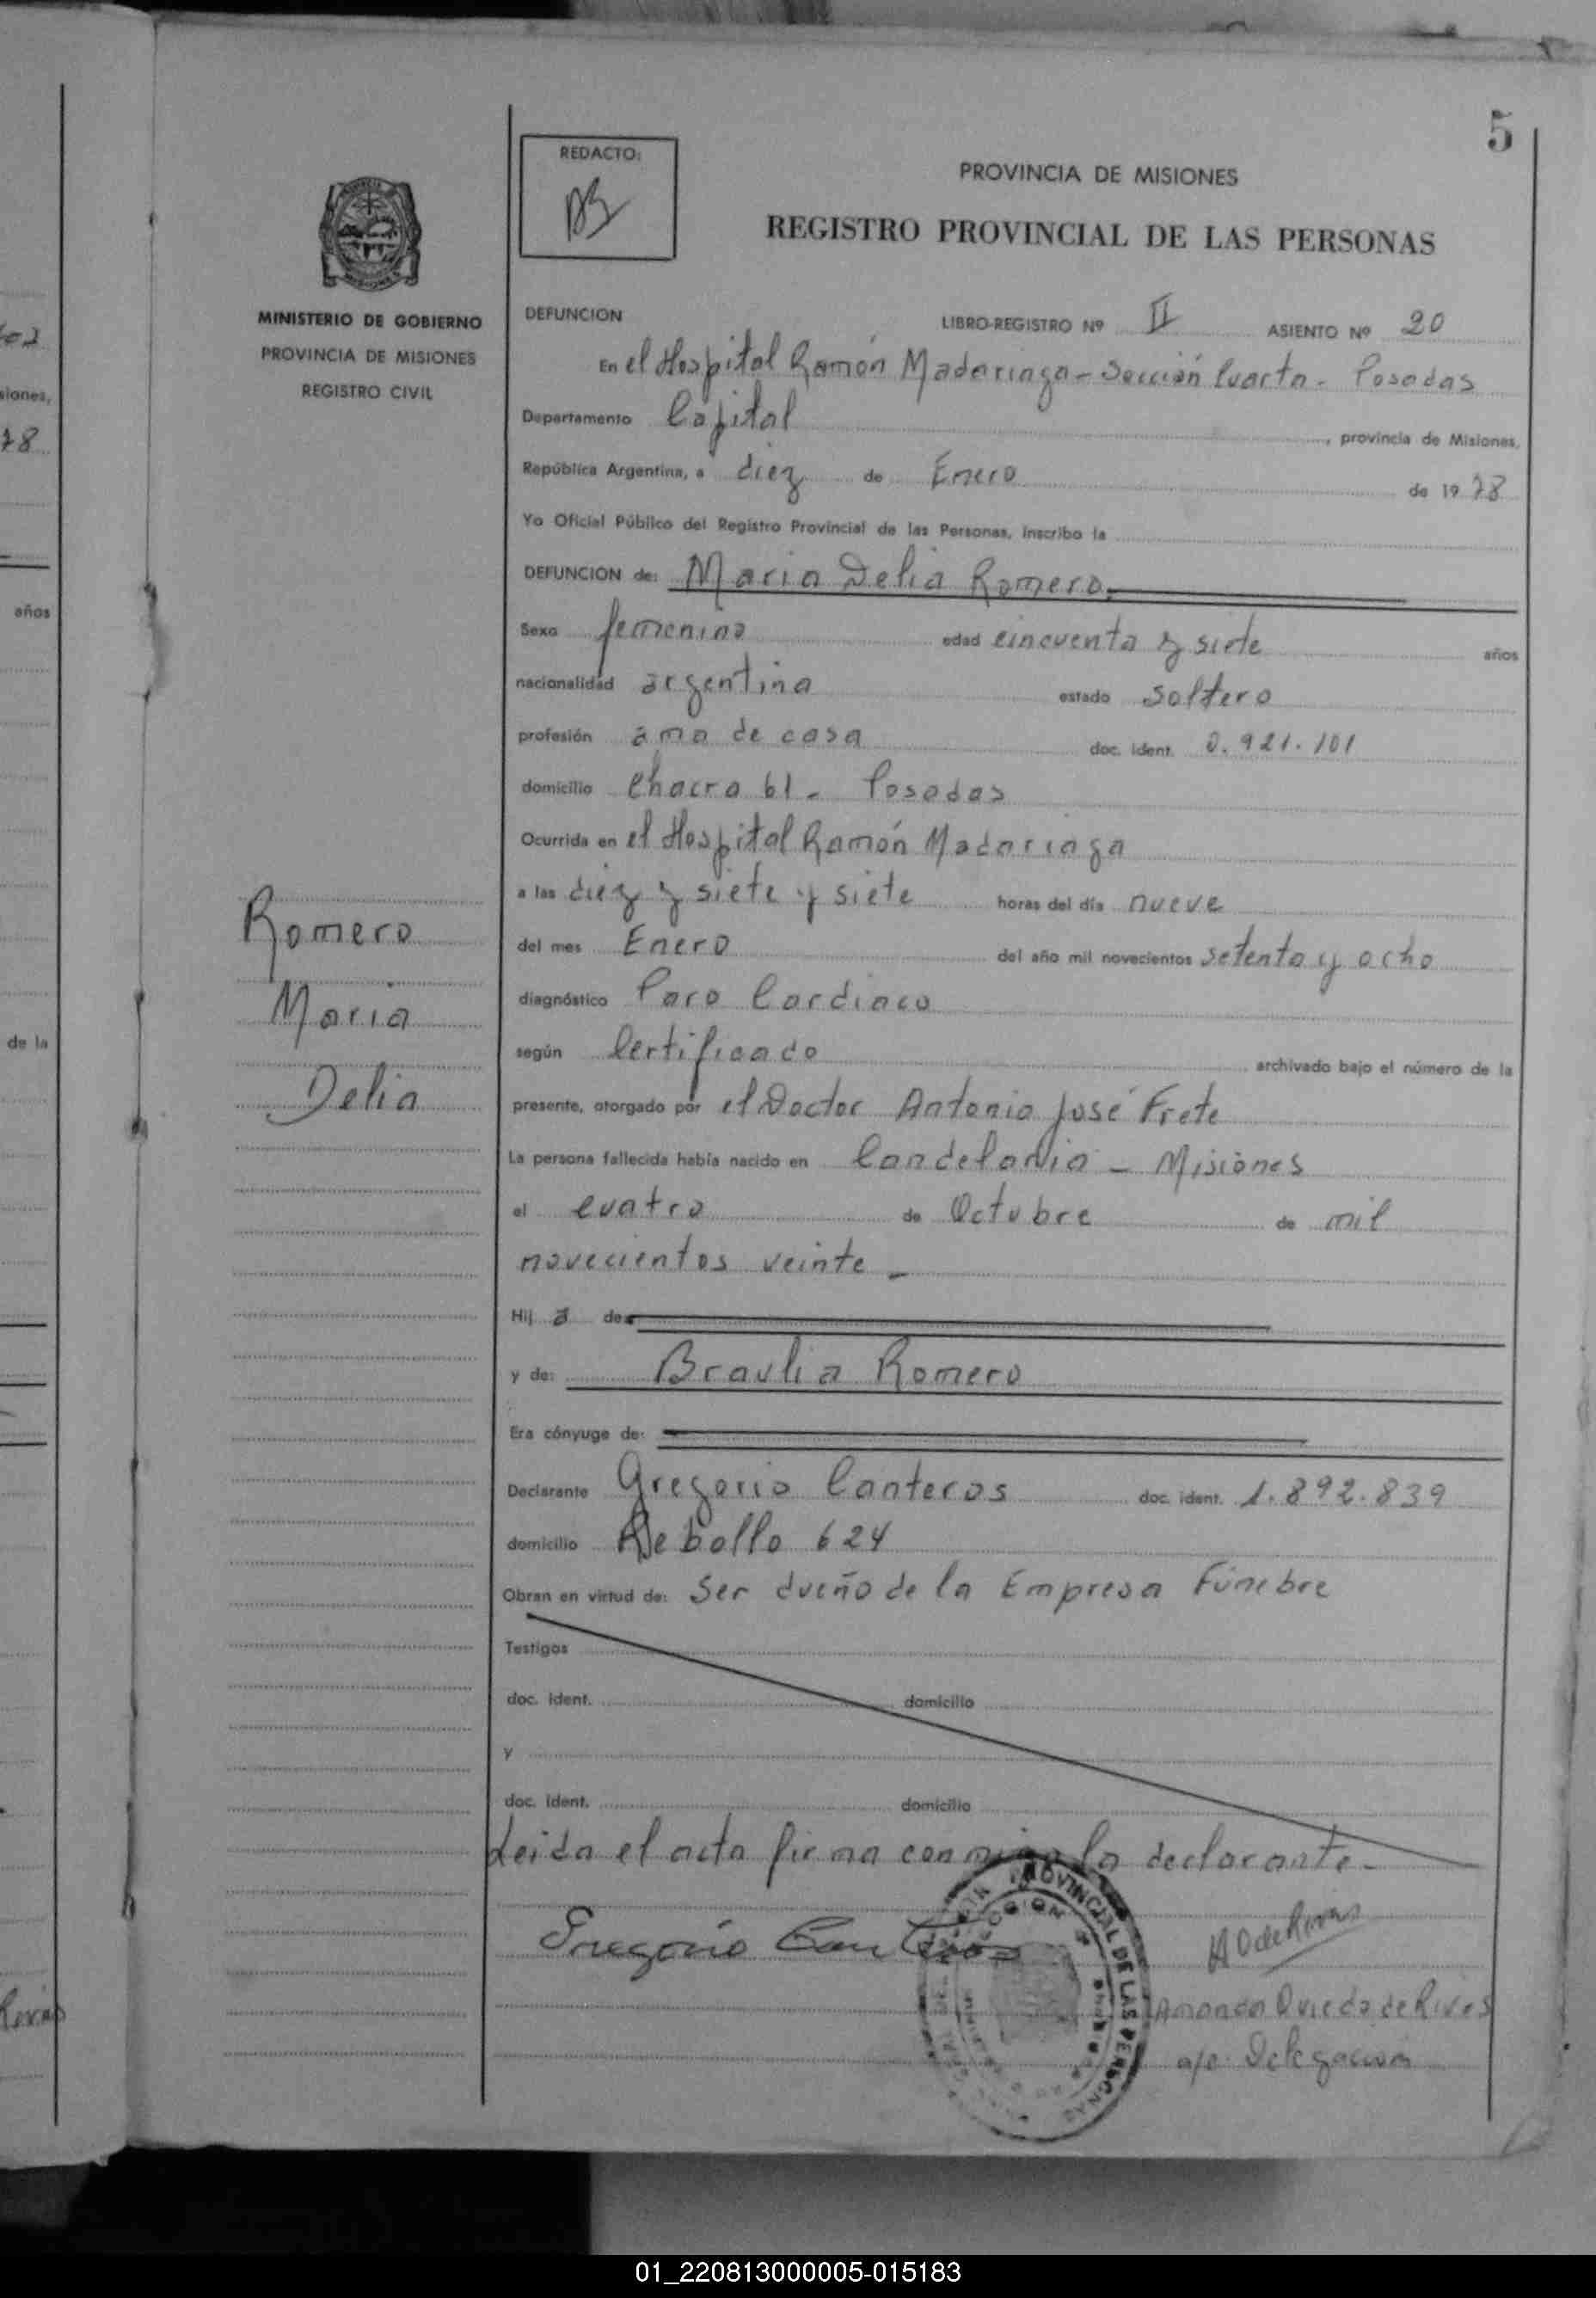 5
REDACTO:
PROVINCIA DE MISIONES
REGISTRO PROVINCIAL DE LAS PERSONAS
MINISTERIO DE GOBIERNO
PROVINCIA DE MISIONES
REGISTRO CIVIL
DEFUNCION LIBRO-REGISTRO Nº II ASIENTO Nº 20
En el Hospital Ramón Madariaga - Sección Cuarta - Posadas
Departamento Capital, provincia de Misiones,
República Argentina, a diez de Enero de 1978
Yo Oficial Público del Registro Provincial de las Personas, inscribo la
DEFUNCION de: Maria Delia Romero
Sexo femenino edad cincuenta y siete años
nacionalidad argentina estado soltero
profesión ama de casa doc. ident. 0.921.101
domicilio Chacra 61 - Posadas
Ocurrida en el Hospital Ramón Madariaga
a las diez y siete y siete horas del día nueve
del mes Enero del año mil novecientos setenta y ocho
diagnóstico Paro Cardiaco
según Certificado archivado bajo el número de la
presente, otorgado por el Doctor Antonio José Frete
La persona fallecida había nacido en Candelaria - Misiones
el cuatro de Octubre de mil
novecientos veinte -
Hij a de:
y de: Braulia Romero
Era cónyuge de:
Declarante Gregorio Canteros doc. ident. 1.892.839
domicilio Rebollo 624
Obran en virtud de: Ser dueño de la Empresa Fúnebre
Testigos
doc. ident. domicilio
y
doc. ident. domicilio
Leida el acta firma conmigo la declarante -
Gregorio Canteros
AO de Rivas
Amanda Oviedo de Rivas
a/c. Delegación
PROVINCIAL DE LAS PERSONAS
Romero
Maria
Delia
siones,
78
años
de la
Rivas
01_220813000005-015183